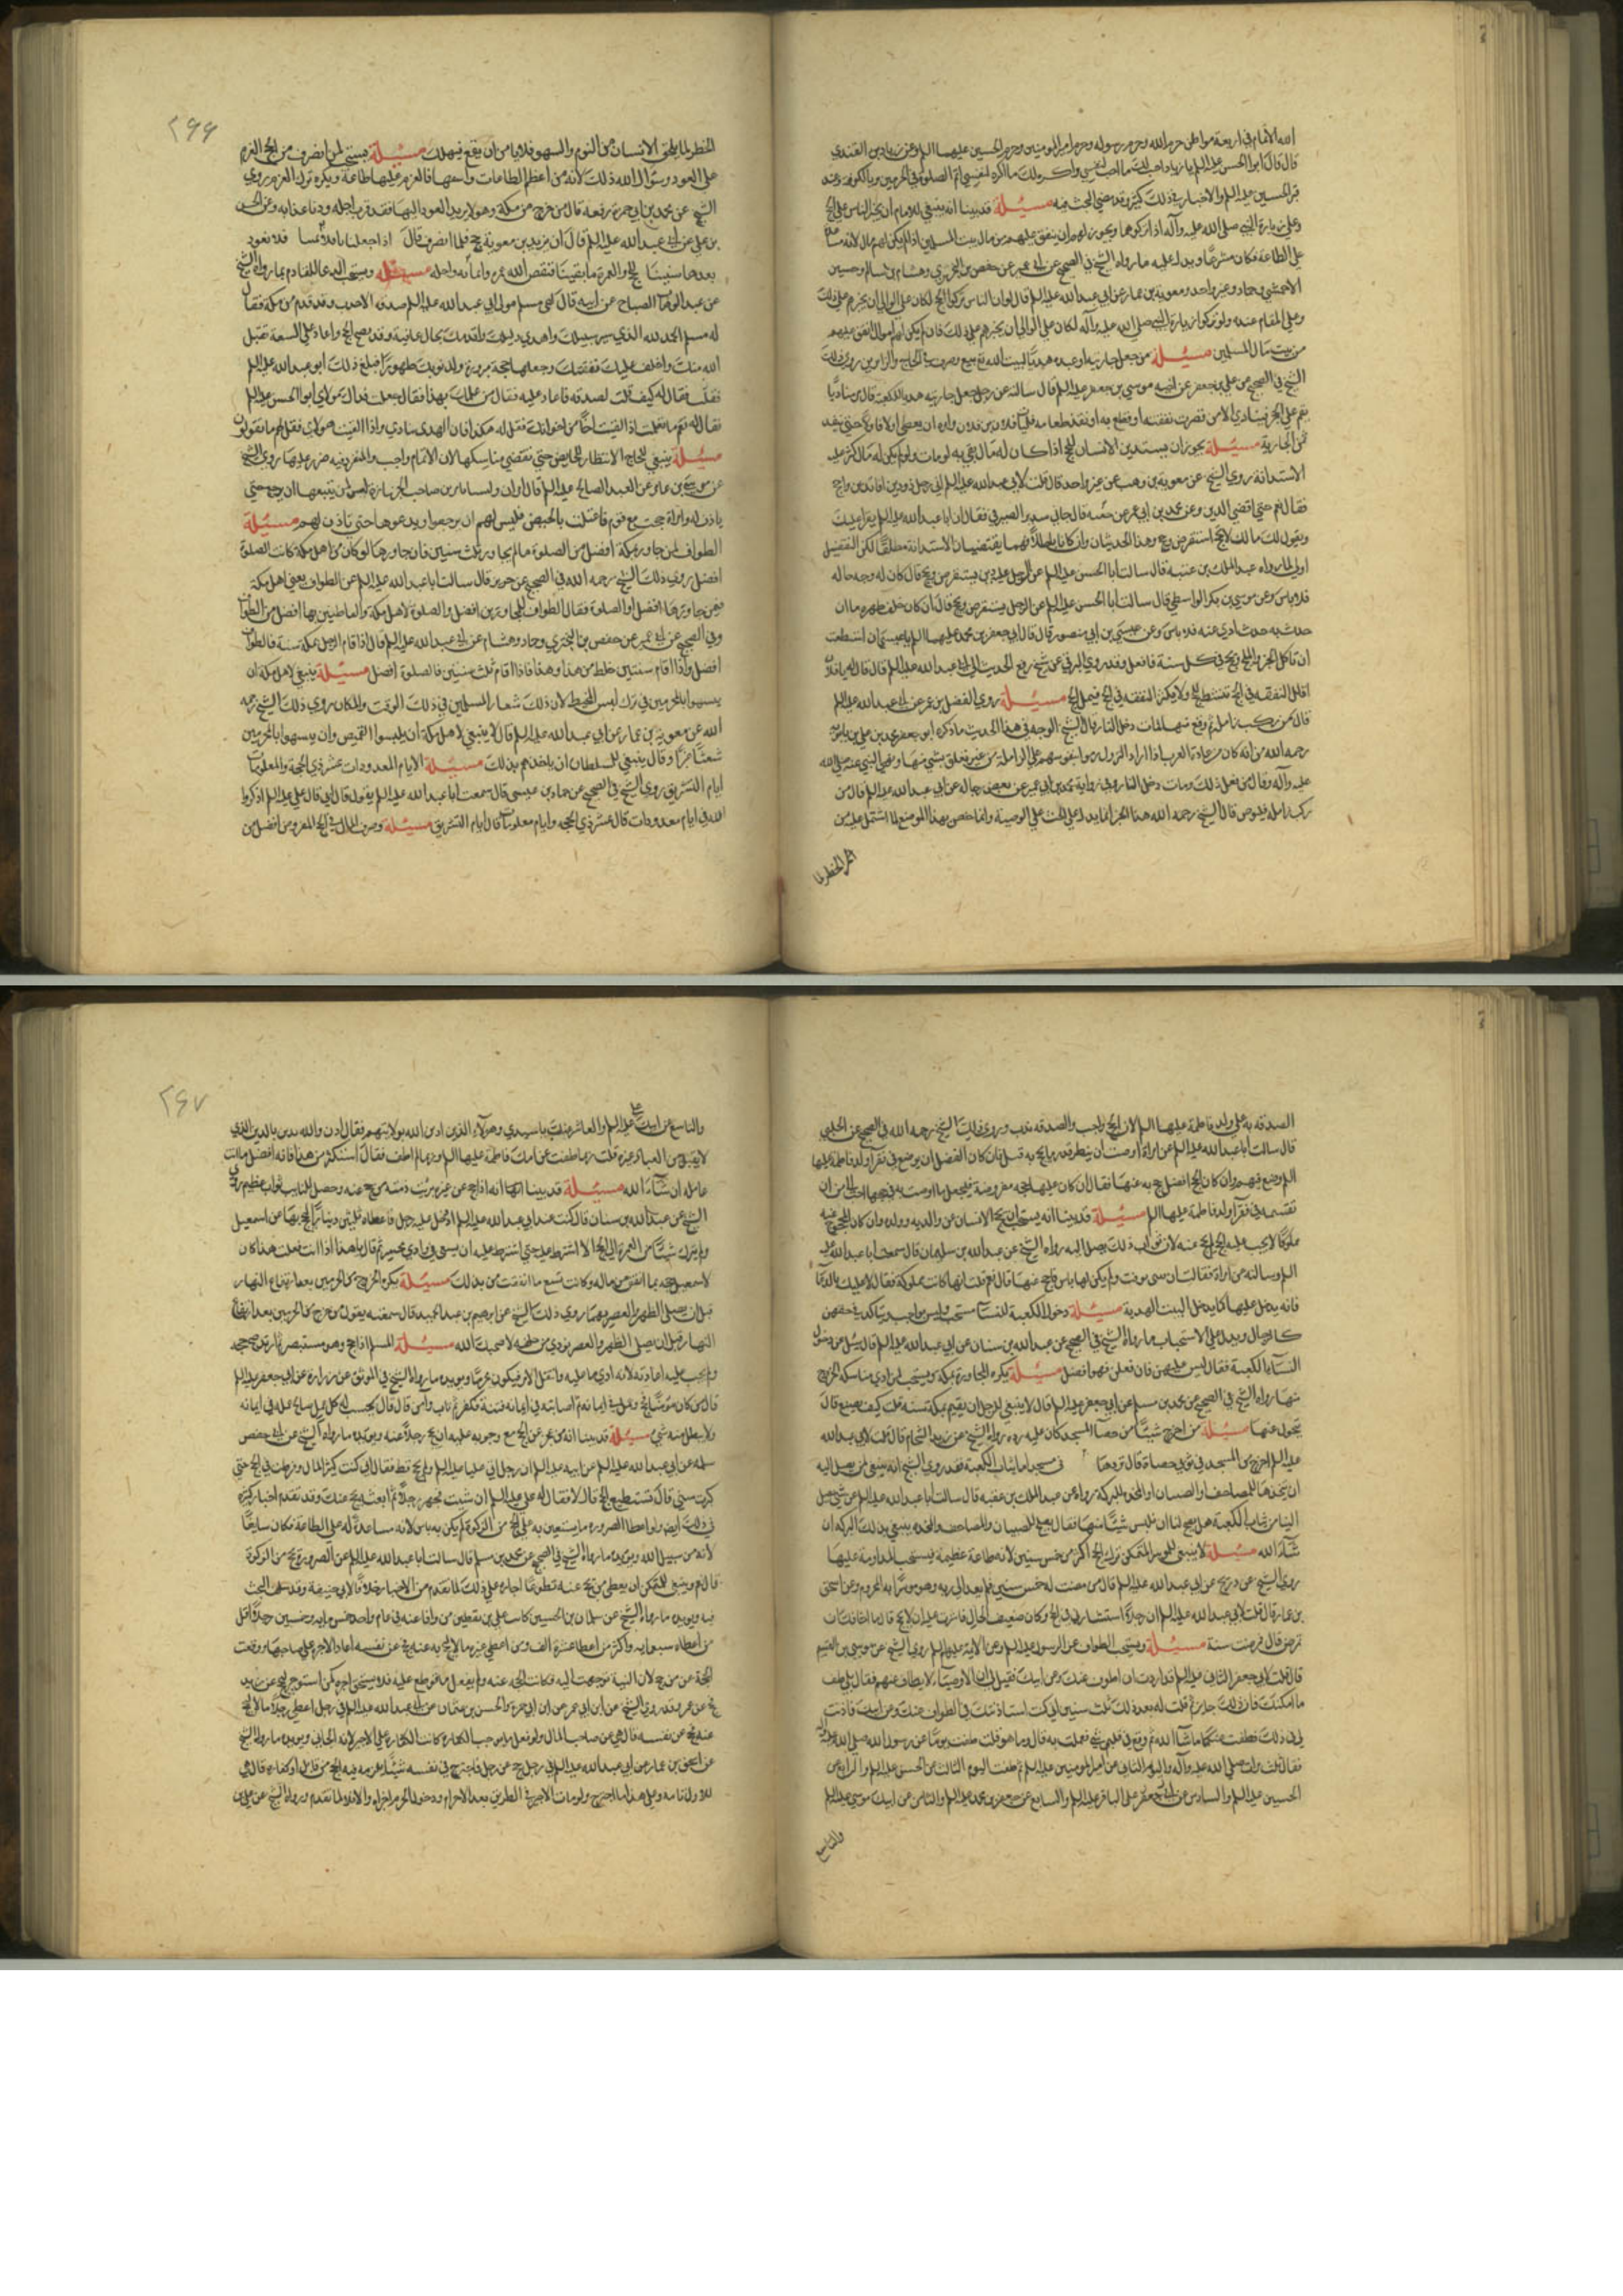 الله الاتمام في اربعة مواطن حرم الله وحرم رسوله وحرم امير المومنين وحرم الحسين عليهما السلم وعن زياد بن القندي
قال قال ابو الحسن عليه السلم يا زياد احب لك ما احب لنفسي واكره لك ما اكره لنفسي اتم الصلوة في الحرمين وبالكوفة وعند
قبر الحسين عليه السلم والاخبار في ذلك كثيرة وقد مضى البحث فيه مسئلة قد بينا انه ينبغي للامام ان يجبر الناس على الحج
وعلى زيارة النبي صلى الله عليه وآله اذا تركوها ويجوز له ان ينفق عليهم من مال بيت المسلمين اذا لم يكن لهم مال لانه
على الطاعة فكان مشروعا ويدل عليه ما رواه الشيخ في الصحيح عن ابي عمير عن حفص بن البختري وهشام بن سالم وحسين
الاحمسي وحماد وغير واحد ومعوية بن عمار عن ابي عبد الله عليه السلم قال لو ان الناس تركوا الحج لكان على الوالي ان يجبرهم على ذلك
وعلى المقام عنده ولو تركوا زيارة النبي صلى الله عليه وآله لكان على الوالي ان يجبرهم على ذلك فان لم يكن لهم اموال انفق عليهم
من بيت مال المسلمين مسئلة من جعل جاريته او عبده هديا لبيت الله بيع وصرف في الحاج والزائرين روى ذلك
الشيخ في الصحيح عن علي بن جعفر عن اخيه موسى بن جعفر عليه السلم قال سالته عن رجل جعل جاريته هديا للكعبة قال مر مناديا
يقم على الحجر فينادي الا من قصرت نفقته او قطع به او نفد طعامه فليات فلان بن فلان وامره ان يعطي اولا فاولا حتى ينفد
ثمن الجارية مسئلة يجوز ان يستدين الانسان للحج اذا كان له مال يفي به لو مات ولو لم يكن له مال كره له
الاستدانة روى الشيخ عن معوية بن وهب عن غير واحد قال قلت لابي عبد الله عليه السلم اني رجل ذو دين افاتدين واحج
فقال نعم هو اقضى للدين وعن محمد بن ابي عمير عن حقبة قال جاني سدير الصيرفي فقال ان ابا عبد الله عليه السلم يقرا عليك
ويقول لك مالك لا تحج استقرض وحج وهذا الحديثان وان كانا مطلقا فهما يقتضيان الاستدانة مطلقا لكن التفصيل
اولى لما رواه عبد الملك بن عتبة قال سالت ابا الحسن عليه السلم عن الرجل عليه دين يستقرض ويحج قال ان كان له وجه في مال
فلا باس وعن موسى بن بكر الواسطي قال سالت ابا الحسن عليه السلم عن الرجل يستقرض ويحج قال ان كان خلف ظهره ما ان
حدث به حدث ادي عنه فلا باس وعن عيسى بن ابي منصور قال قال لي جعفر بن محمد عليهما السلم يا عيسى ان استطعت
ان تاكل الخبز والملح وتحج في كل سنة فافعل وقد روى البرقي عن شيخ رفع الحديث الى ابي عبد الله عليه السلم قال قال له يا فلان
اقلل النفقة في الحج تنشط للحج ولا تكثر النفقة في الحج فتمل الحج مسئلة روى الفضل بن عمر عن ابي عبد الله عليه السلم
قال من ركب زاملة ثم وقع منها فمات دخل النار قال الشيخ الوجه في هذا الحديث ما ذكره ابو جعفر محمد بن علي بن بابويه
رحمه الله من انه كان من عادة العرب اذا اراد النزول رموا بنفوسهم على الزاملة من غير تعلق بشي منها فنهى النبي عنه صلى الله
عليه وآله وقال من فعل ذلك ومات دخل النار وفي رواية محمد بن ابي عمير عن بعض رجاله عن ابي عبد الله عليه السلم قال من
ركب زاملة فليوص قال الشيخ رحمه الله هذا الخبر انما يدل على الحث على الوصية وانما خص بهذا الموضع لما اشتمل عليه من
الخطر لما
٢٦٦
الخطر لما يلحق الانسان من النوم والسهو فلا يامن ان يقع فيهلك مسئلة يستحب لمن انصرف من الحج العزم
على العود وسؤال الله ذلك لانه من اعظم الطاعات واسمها فالعزم عليها طاعة ويكره ترك العزم روى
الشيخ عن محمد بن ابي حمزة رفعه قال من خرج من مكة وهو لا يريد العود اليها فقد قرب اجله ودنا عذابه وعن الحسن
بن علي عن ابي عبد الله عليه السلم قال ان يزيد بن معوية حج فلما انصرف قال اذا جعلنا ثافلا يمينا فلا نعود
بعدها سنينا للحج والعمرة ما بقينا فنقص الله عمره واماته واجله مسئلة ويستحب الدعا للقادم بما رواه الشيخ
عن عبد الوهاب الصباح عن ابيه قال لقي مسلم مولى ابي عبد الله عليه السلم صدقه الاحدب وقد قدم من مكة فقال
له مسلم الحمد لله الذي يسر سبيلك واهدى دليلك واقدمك بحال عافية وقد قضى الحج واعان على السعة فتقبل
الله منك واخلف عليك نفقتك وجعلها حجة مبرورة ولذنوبك طهورا فبلغ ذلك ابو عبد الله عليه السلم
فقال له كيف قلت لصدقه فاعاد عليه فقال من علمك بهذا فقال جعلت فداك مولاي ابو الحسن عليه السلم
فقال له نعم ما تعلمت اذا لقيت اخا من اخوانك فقل له هكذا فان الهدى بنا هدى واذا لقيت هولاء فقل لهم ما يقولون
مسئلة ينبغي للحاج الانتظار للحايض حتى تقضي مناسكها لان الاتمام واجب والتفرقه ضرر عليها روى الشيخ
يأذن له وامراة حجت مع قوم فاعتلت بالحيض فليس لهم ان يرجعوا ويدعوها حتى تأذن لهم مسئلة
الطواف لمن جاور مكة افضل من الصلوة ما لم يجاور ثلث سنين فان جاورها او كان من اهل مكة كانت الصلوة
افضل روى ذلك الشيخ رحمه الله في الصحيح عن حريز قال سالت ابا عبد الله عليه السلم عن الطواف يعني اهل مكة
ممن جاورها افضل او الصلوة فقال الطواف للمجاورين افضل والصلوة لاهل مكة والقاطنين بها افضل من الطواف
وفي الصحيح عن ابي عمير عن حفص بن البختري وحماد وهشام عن ابي عبد الله عليه السلم قال اذا قام الرجل بمكة سنة فالطواف
افضل واذا اقام سنتين خلط من هذا وهذا فاذا اقام ثلث سنين فالصلوة افضل مسئلة ينبغي لاهل مكة ان
يتشبهوا بالمحرمين في ترك لبس المخيط لان ذلك شعار المسلمين في ذلك الوقت والمكان روى ذلك الشيخ رحمه
الله عن معوية بن عمار عن ابي عبد الله عليه السلم قال لا ينبغي لاهل مكة ان يلبسوا القميص وان يتشبهوا بالمحرمين
شعثا غبرا وقال ينبغي للسلطان ان ياخذهم بذلك مسئلة الايام المعدودات عشر ذي الحجة والمعلومات
ايام التشريق روى الشيخ في الصحيح عن حماد بن عيسى قال سمعت ابا عبد الله عليه السلم يقول قال ابي قال علي عليه السلم اذكروا
الله في ايام معدودات قال عشر ذي الحجة وايام معلومات قال ايام التشريق مسئلة وصرف المال في الحج المفروض افضل من
الصدقة به على ولد فاطمة عليها السلم لان الحج واجب والصدقه ندب وروى ذلك الشيخ رحمه الله في الصحيح عن الحلبي
قال سالت ابا عبد الله عليه السلم عن امراة اوصت ان ينظر قدر ما يحج به قيل فان كان الفضل ان يوضع في فقراء ولد فاطمة عليها
السلم وضع فيهم وان كان الحج افضل حج به عنها فقال ان كان عليها حجة مفروضة فليجعل ما اوصت به في حجها احب الي من ان
تقسمه في فقراء ولد فاطمة عليها السلم مسئلة قد بينا انه يستحب ان يحج الانسان عن والديه وولده وان كان المحجوج عنه
مملوكا لا يجب عليه الحج عنه لان ثواب ذلك يصل اليه رواه الشيخ عن عبد الله بن سليمان قال سمعت ابا عبد الله عليه
السلم وسالته عن امراة فقالت ان بنتي توفت ولم يكن لها باس فاحج عنها قال نعم قلت انها كانت مملوكة فقال لا عليك بالدعا
فانه يدخل عليها كما يدخل البيت الهدية مسئلة دخول الكعبة للنساء مستحب وليس بواجب ولا متاكد في حقهن
كالرجال ويدل على الاستحباب ما رواه الشيخ في الصحيح عن عبد الله بن سنان عن ابي عبد الله عليه السلم قال سئل عن دخول
النساء الكعبة فقال ليس عليهن فان فعلن فهو افضل مسئلة يكره المجاورة بمكة ويستحب لمن ادى مناسكه الخروج
منها رواه الشيخ في الصحيح عن محمد بن مسلم عن ابي جعفر عليه السلم قال لا ينبغي للرجل ان يقيم بمكة سنة قلت كيف يصنع قال
يتحول عنها مسئلة من اخرج شيئا من حصا المسجد كان عليه رده رواه الشيخ عن زيد الشحام قال قلت لابي عبد الله
عليه السلم اخرج من المسجد في ثوبي حصاة قال تردها في مسجد اما ثياب الكعبة فقد روى الشيخ انه ينبغي لمن يصل اليه
ان يتخذها للمصاحف والصبيان او المخدة للبركة رواه عن عبد الملك بن عتبه قال سالت ابا عبد الله عليه السلم عن شي يصل
الينا من ثياب الكعبة هل يصح لنا ان نلبس شيئا منها فقال يصح للصبيان والمصاحف والمخدة يبتغي بذلك البركه ان
شاء الله مسئلة لا ينبغي للموسر المتمكن ترك الحج اكثر من خمس سنين لانه طاعة عظيمة يستحب المداومة عليها
روى الشيخ عن ذريح عن ابي عبد الله عليه السلم قال من مضت له خمس سنين فلم يفد الى ربه وهو موسر انه لمحروم وعن اسحق
بن عمار قال قلت لابي عبد الله عليه السلم ان رجلا استشارني في الحج وكان ضعيف الحال فاشرت عليه ان لا يحج قال ما اخلقك ان
تمرض قال فمرضت سنة مسئلة ويستحب الطواف عن الرسول عليه السلم وعن الائمة عليهم السلم روى الشيخ عن موسى بن القسم
قال قلت لابي جعفر الثاني عليه السلم قد اردت ان اطوف عنك وعن ابيك فقيل لي ان الاوصياء لا يطاف عنهم فقال بلى طف
ما امكنك فان ذلك جايز ثم قلت له بعد ذلك بثلث سنين اني كنت استاذنتك في الطواف عنك وعن ابيك فاذنت
لي في ذلك فطفت عنكما ما شاء الله ثم وقع في قلبي شي فعملت به قال وما هو قلت طفت يوما عن رسول الله صلى الله عليه وآله
فقال ثلث مرات صلى الله عليه وآله واليوم الثاني عن امير المومنين عليه السلم ثم طفت اليوم الثالث عن الحسن عليه السلم والرابع عن
الحسين عليه السلم والسادس عن ابي جعفر علي الباقر عليه السلم والسابع عن جعفر بن محمد عليه السلم والثامن عن ابيك موسى عليه السلم
والتاسع
٢٦٧
والتاسع عن ابيك علي عليه السلم والعاشر عنك يا سيدي وهؤلاء الذين ادين الله بولايتهم فقال اذن والله تدين بالدين الذي
لا يقبل من العباد غيره قلت ربما طفت عن امك فاطمة عليها السلم وربما لم اطف فقال استكثر من هذا فانه افضل ما انت
عامله ان شاء الله مسئلة قد بينا انه اذا حج عن غيره برئت ذمته من حج عنه وحصل للنايب ثواب عظيم روى
الشيخ عن عبد الله بن سنان قال كنت عند ابي عبد الله عليه السلم اذ دخل عليه رجل فاعطاه ثلثين دينارا يحج بها عن اسمعيل
ولم يترك شيئا من العمرة الى الحج الا اشترط عليه حتى اشترط عليه ان يسعى في وادي محسر ثم قال يا هذا اذا انت فعلت هذا كان
لاسمعيل حجة بما انفق من ماله وكانت لك تسع بما اتعبت من بدنك مسئلة يكره الخروج من الحرمين بعد ارتفاع النهار
قبل ان يصلي الظهر والعصر بهما روى ذلك الشيخ عن ابرهيم بن عبد الحميد قال سمعته يقول من خرج من الحرمين بعد ارتفاع
النهار قبل ان يصلي الظهر والعصر نودي من خلفه لا صحبك الله مسئلة المسلم اذا حج وهو مستبصر ثم ارتد صح حجه
ولم يجب عليه اعادته لانه ادى ما عليه وامتثل الامر فيكون مجزيا ويويده ما رواه الشيخ في الموثق عن زرارة عن ابي جعفر عليه السلم
قال من كان مؤمنا فحج وعمل في ايمانه ثم اصابته في ايمانه فتنة فكفر ثم تاب وامن قال قال يحسب له كل عمل صالح عمله في ايمانه
ولا يبطل منه شي مسئلة قد بينا انه من عجز عن الحج مع وجوبه عليه ان يحج رجلا عنه ويويده ما رواه الشيخ عن ابي حفص
سلمه عن ابي عبد الله عليه السلم عن ابيه عليه السلم ان رجلا اتى عليا عليه السلم ولم يحج قط فقال اني كنت كثير المال وفرطت في الحج حتى
كبرت سني قال تستطيع الحج قال لا فقال له علي عليه السلم ان شئت فجهز رجلا ثم ابعثه يحج عنك وقد تقدم اخبار كثيرة
في ذلك ايضا ولو اعطا الصرورة ما يستعين به على الحج من الزكوة لم يكن به باس لانه مساعدة له على الطاعة فكان سايغا
لانه من سبيل الله ويويده ما رواه الشيخ في الصحيح عن محمد بن مسلم قال سالت ابا عبد الله عليه السلم عن الصرورة يحج من الزكوة
قال نعم وينبغي للمتمكن ان يعطي من يحج عنه تطوعا اجارة على ذلك لما تقدم من الاخبار خلافا لابي حنيفة وقد سلف البحث
فيه ويويده ما رواه الشيخ عن سلمان بن الحسين كاتب علي بن يقطين من وافا عنه في عام واحد خمس مايه وخمسين رجلا اقل
من اعطاه سبعمايه واكثر من اعطاه عشرة الف ومن اعطى غيره مالا يحج به عنه فحج عن نفسه اعاد الاجرة على صاحبها ووقعت
عنه حج عن نفسه قال هي عن صاحب المال ولو فعل ما يوجب الكفارة كانت الكفارة على الاجير لانه الجاني ويويده ما رواه الشيخ
عن اسحق بن عمار عن ابي عبد الله عليه السلم في رجل حج عن رجل فاجترح في نفسه شيئا يلزمه فيه الحج من قابل او كفارة قال هي